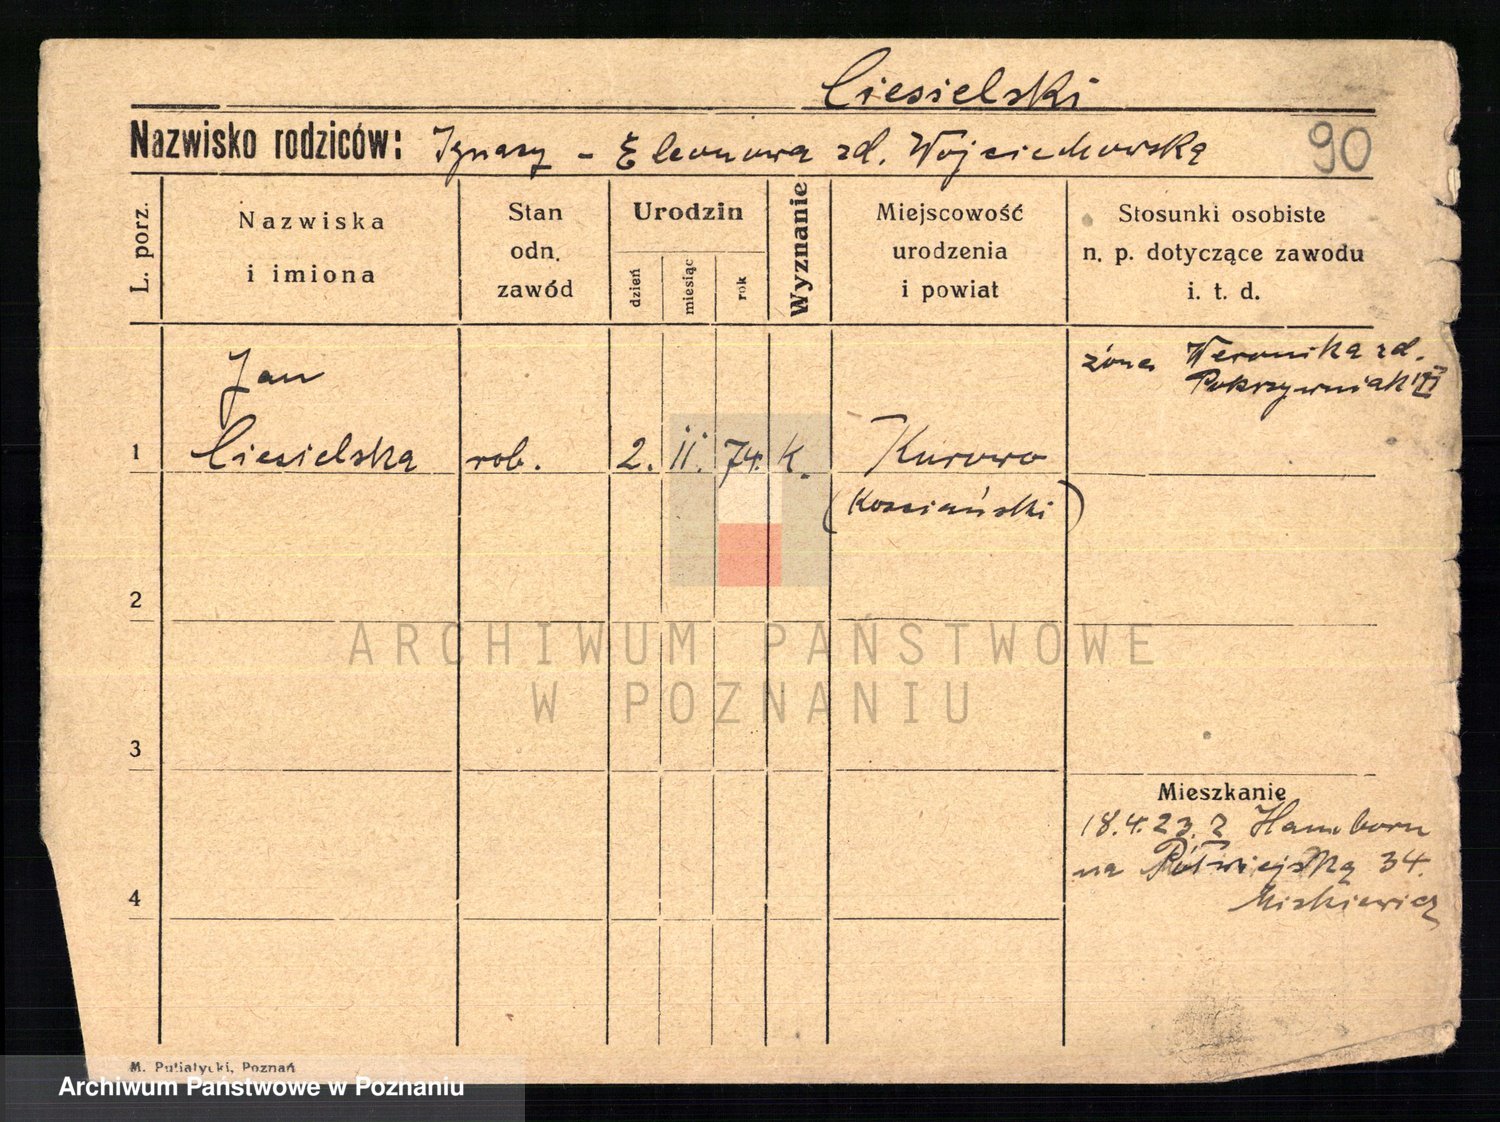 Ciesielski
Nazwisko rodziców: Ignacy - Eleonowa zd. Wojciechowską
90
L. porz.
Nazwiska
i imiona
Stan
odn.
zawód
Urodzin
dzień
miesiąc
rok
Wyznanie
Miejscowość
urodzenia
i powiat
Stosunki osobiste
n. p. dotyczące zawodu
i. t. d.
Jan
żona Weronika zd.
Pokrzywniak
1 Ciesielska rob. 2. 11. 74. K. Kurowo
(Kościański)
2
3
4
Mieszkanie
18.4.23. z Hamborn
na Półwiejską 34.
Miskiewicz
M. Putiatycki, Poznań
ARCHIWUM PAŃSTWOWE
W POZNANIU
Archiwum Państwowe w Poznaniu